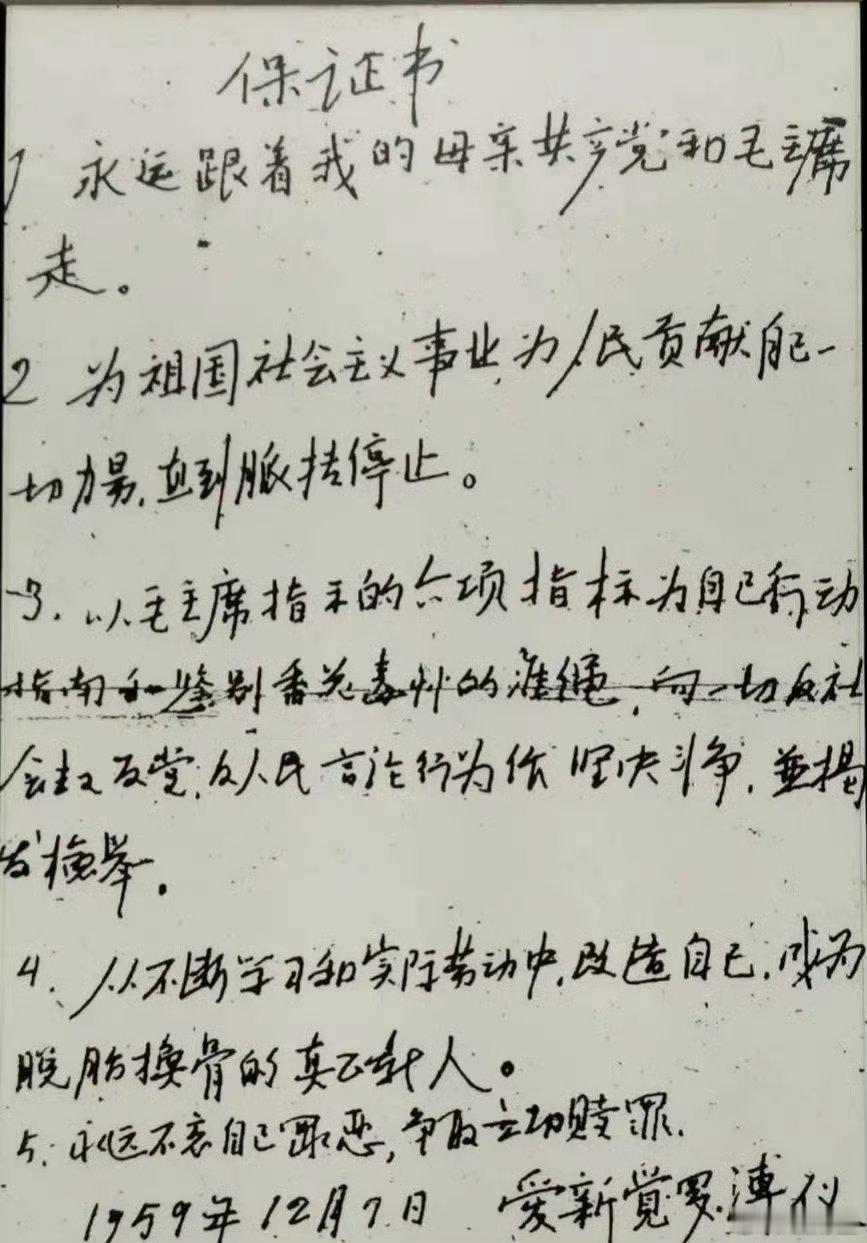 保证书
1 永远跟着我的母亲共产党和毛主席
走。
2 为祖国社会主义事业,为人民贡献自己一
切力量,直到脉搏停止。
3. 以毛主席指示的六项指标为自己行动
指南和鉴别香花毒草的准绳,向一切反社
会主义反党,反人民言论行为作坚决斗争,並揭
发检举。
4. 从不断学习和实际劳动中,改造自己,成为
脱胎换骨的真正新人。
5. 永远不忘自己罪恶,争取立功赎罪.
1959年12月7日 爱新觉罗.溥仪